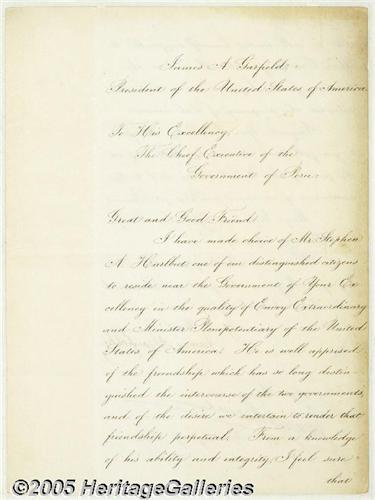 James A. Garfield,
President of the United States of America
To His Excellency,
The Chief Executive of the
Government of Peru.
Great and Good Friend:
I have made choice of Mr. Stephen
A. Hurlbut one of our distinguished citizens
to reside near the Government of Your Ex-
cellency in the quality of Envoy Extraordinary
and Minister Plenipotentiary of the United
States of America. He is well apprised
of the friendship which has so long distin-
guished the intercourse of the two governments,
and of the desire we entertain to render that
friendship perpetual. From a knowledge
of his ability and integrity, I feel sure
that
©2005 HeritageGalleries